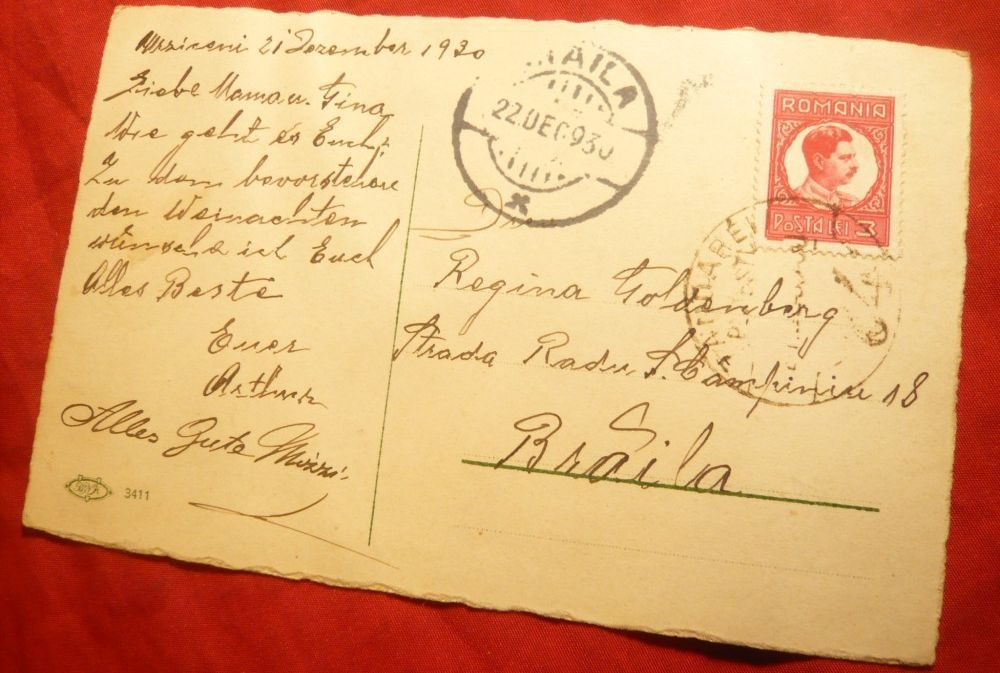 Urziceni 21 Dezember 1930
Liebe Mama u. Gina
Wie geht es Euch?
Zu dem bevorstehen
den Weinachten
wünsche ich Euch
Alles Beste
Euer
Arthur
Alles Gute Mizzi
3411
BRAILA
22.DEC 930
ROMANIA
POSTA LEI 3
Regina Goldenberg
Strada Radu S. Campiniu 18
Brăila